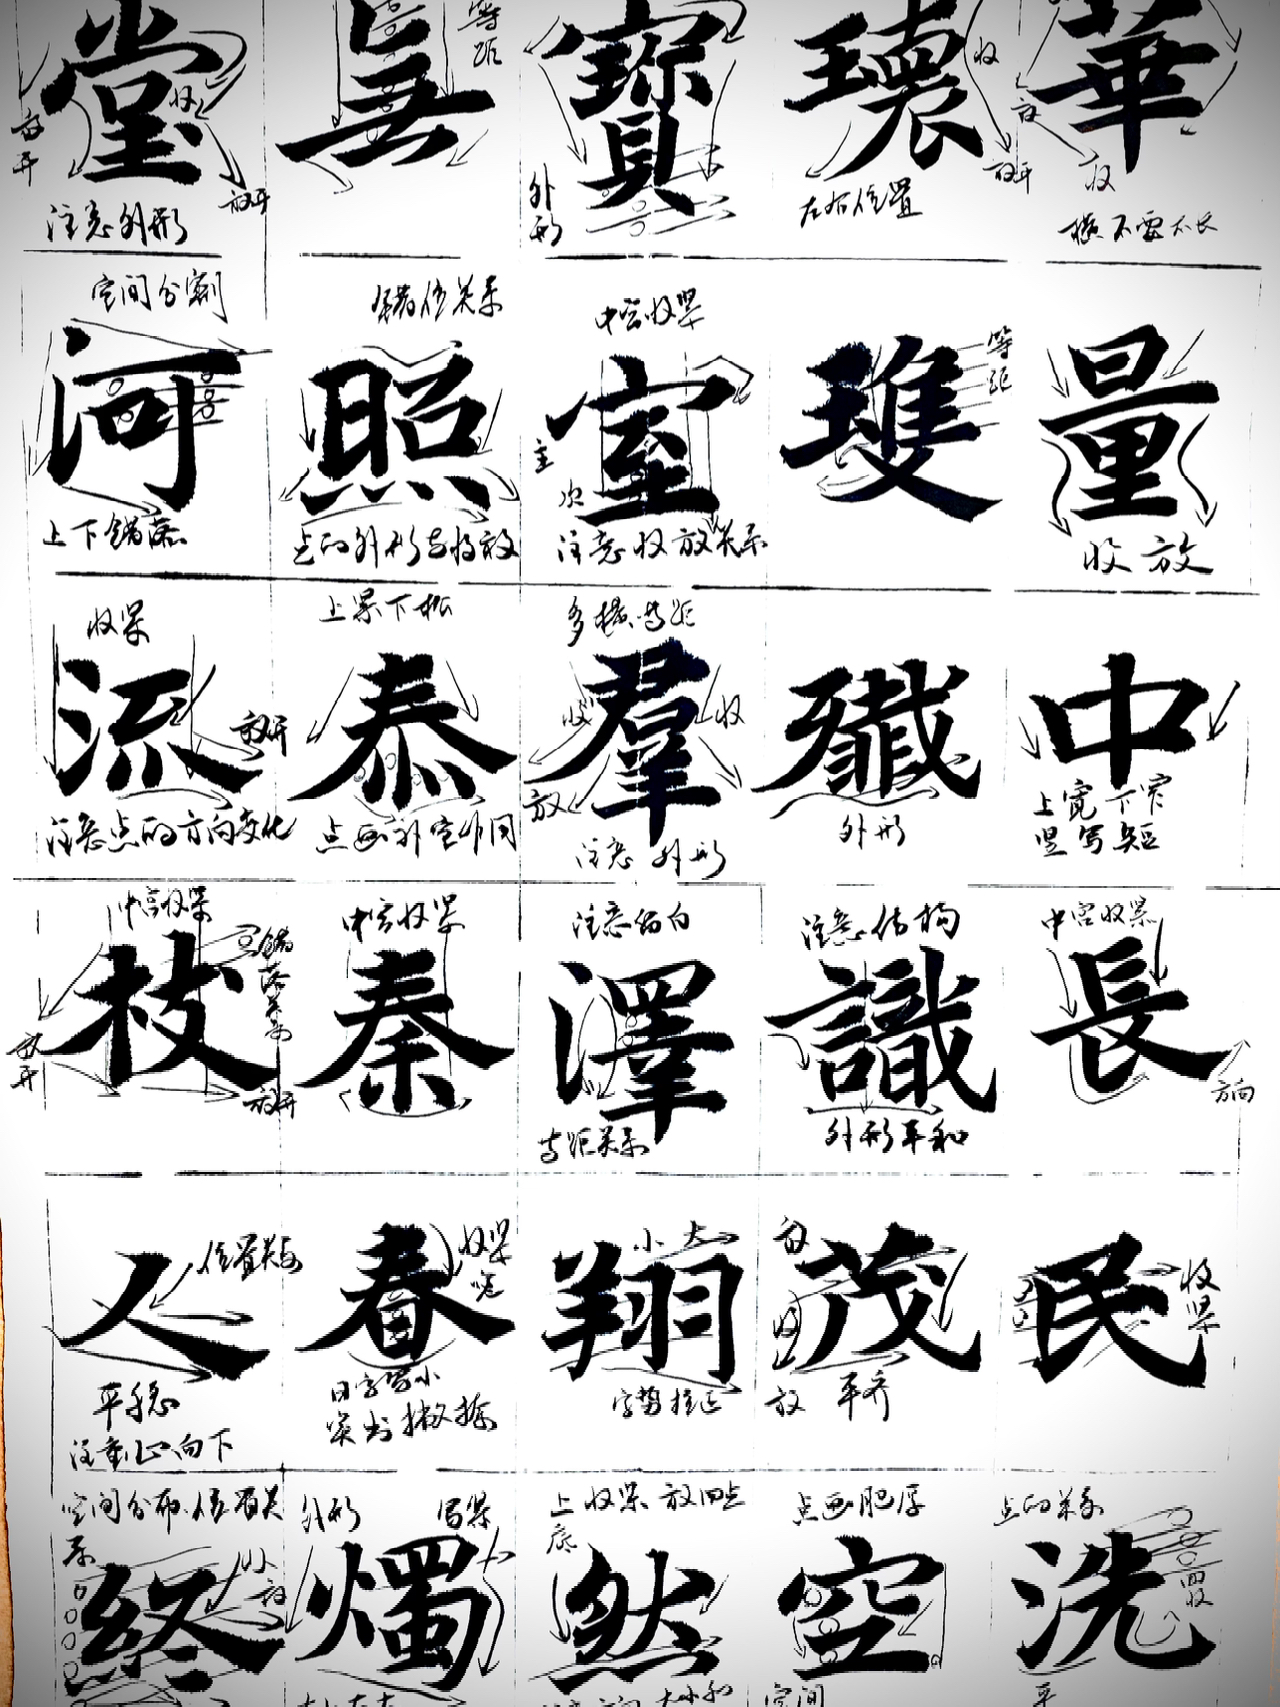 堂 無 寶 瓌 華
等距
收
收
放开
放开
放
放开
收
注意外形
外形
左右位置
横不要太长
空间分割
错位关系
中宫收紧
河 照 室 璡 量
等距
主
次
上下错落
点的外形与收放
注意收放关系
收放
收紧
上紧下松
多横等距
流 泰 羣 殲 中
放开
收
收
放
注意点的方向变化
点画补空作用
注意外形
外形
上宽下窄
竖写短
中宫收紧
中宫收紧
注意留白
注意结构
中宫收紧
枝 秦 澤 識 長
错落关系
放开
放开
方向
等距关系
外形平和
人 春 翔 茂 民
位置关系
收紧
小 大
放
收紧
平稳
注重心向下
日字写小
突出撇捺
字势接近
放
平齐
空间分布 位置关系
外形
写紧
上收紧 放四点底
点画肥厚
点的关系
終 燭 然 空 洗
放
四收
空间
平